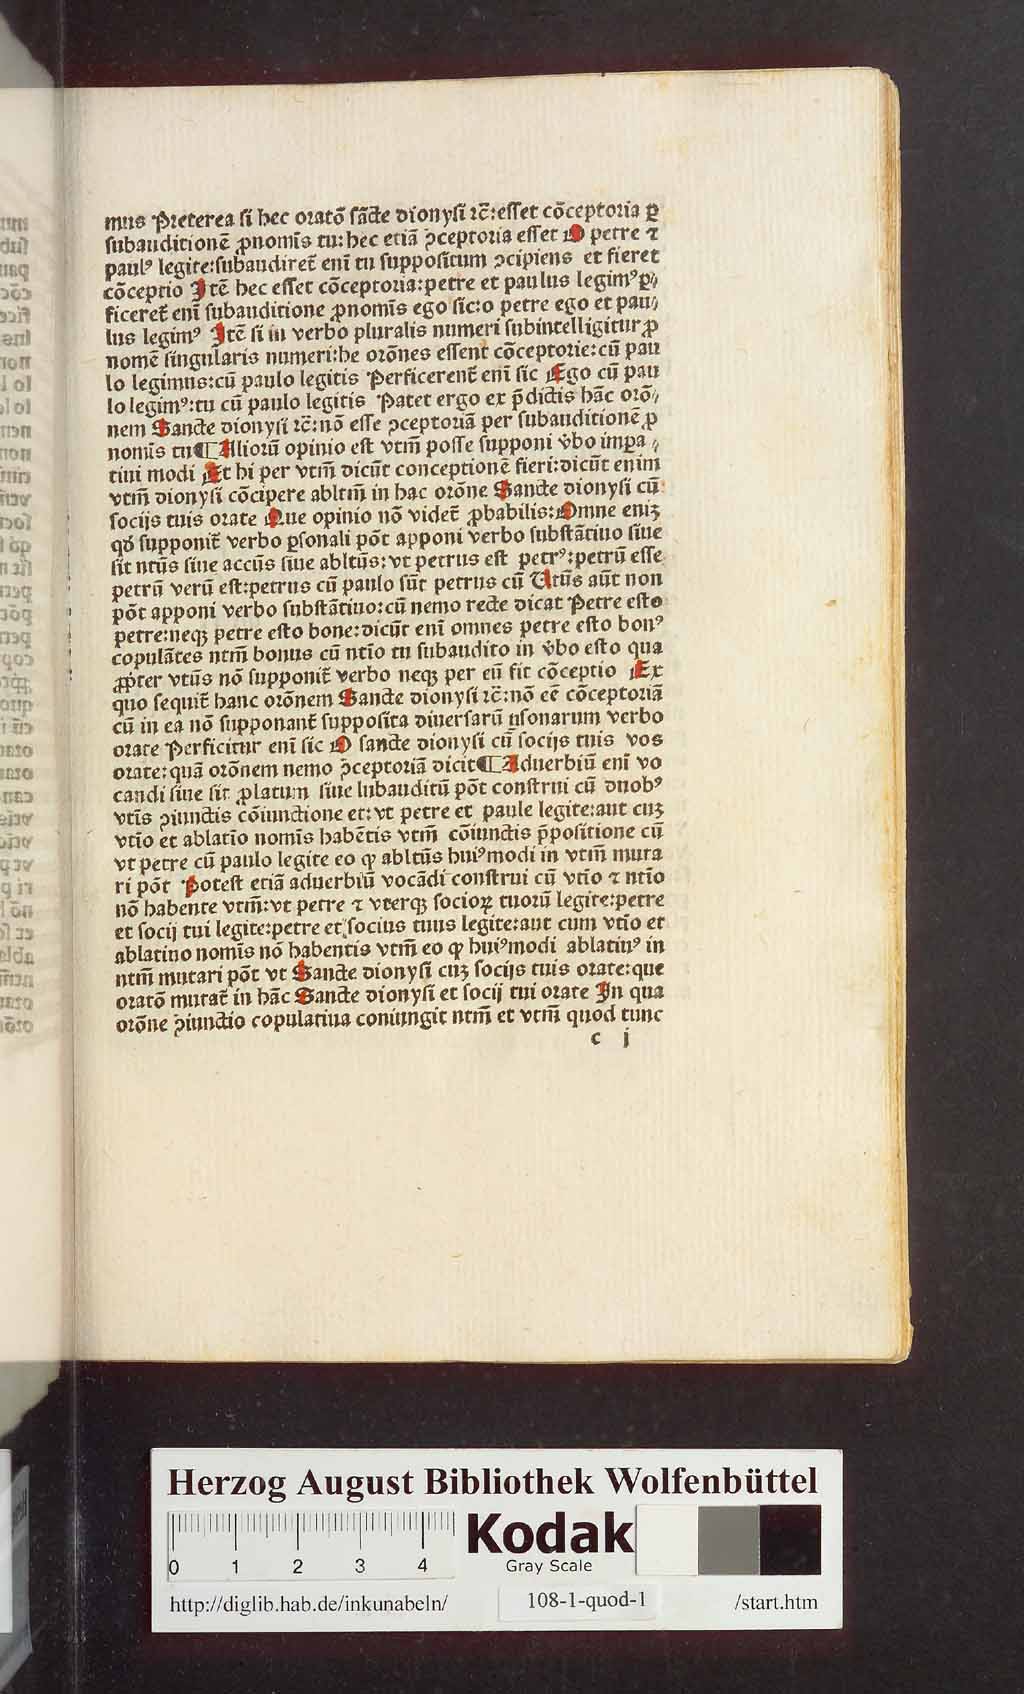 mus Preterea si hec oratõ sãcte dionysi ⁊c̃: esset cõceptoria ꝑ
subauditionẽ ꝓnomĩs tu: hec etiã ꝯceptoria esset O petre ⁊
paulꝰ legite: subaudiret̃ enĩ tu suppositum ꝯcipiens et fieret
cõceptio Itẽ hec esset cõceptoria: petre et paulus legimꝰ ꝑ⸗
ficeret̃ enĩ subauditione ꝓnomĩs ego sic: o petre ego et pau⸗
lus legimꝰ Itẽ si in verbo pluralis numeri subintelligitur ꝓ
nomẽ singularis numeri: he orõnes essent cõceptorie: cũ pau
lo legimus: cũ paulo legitis Perficerent̃ enĩ sic Ego cũ pau
lo legimꝰ: tu cũ paulo legitis Patet ergo ex p̃dictis hãc orõ⸗
nem Sancte dionysi ⁊c̃: nõ esse ꝯceptoriã per subauditionẽ ꝓ
nomĩs tu ¶ Alliorũ opinio est vtm̃ posse supponi v̉bo impa⸗
tiui modi Et hi per vtm̃ dicũt conceptionẽ fieri: dicũt enim
vtm̃ dionysi cõcipere abltm̃ in hac orõne Sancte dionysi cũ
socijs tuis orate Que opinio nõ videt̃ ꝓbabilis: Omne eniꝫ
qđ supponit̃ verbo ꝑsonali põt apponi verbo substãtiuo siue
sit ntũs siue accũs siue abltũs: vt petrus est petrꝰ: petrũ esse
petrũ verũ est: petrus cũ paulo sũt petrus cũ Vtũs aũt non
põt apponi verbo substãtiuo: cũ nemo recte dicat Petre esto
petre: neqꝫ petre esto bone: dicũt enĩ omnes petre esto bonꝰ
copulãtes ntm̃ bonus cũ ntĩo tu subaudito in v̉bo esto qua
ꝓpter vtũs nõ supponit̃ verbo neqꝫ per eũ fit cõceptio Ex
quo sequit̃ hanc orõnem Sancte dionysi ⁊c̃: nõ eẽ cõceptoriã
cũ in ea nõ supponant̃ supposita diuersarũ ꝑsonarum verbo
orate Perficitur enĩ sic O sancte dionysi cũ socijs tuis vos
orate: quã orõnem nemo ꝯceptoriã dicit ¶ Aduerbiũ enĩ vo
candi siue sit ꝓlatum siue subauditũ põt construi cũ duobꝰ
vtĩs ꝯiunctis cõiunctione et: vt petre et paule legite: aut cuꝫ
vtĩo et ablatĩo nomĩs habẽtis vtm̃ cõiunctis p̃positione cũ
vt petre cũ paulo legite eo ꝙ abltũs huiꝰmodi in vtm̃ muta
ri põt Potest etiã aduerbiũ vocãdi construi cũ vtĩo ⁊ ntĩo
nõ habente vtm̃: vt petre ⁊ vterqꝫ socioꝝ tuorũ legite: petre
et socij tui legite: petre et socius tuus legite: aut cum vtĩo et
ablatiuo nomĩs nõ habentis vtm̃ eo ꝙ huiꝰmodi ablatiuꝰ in
ntm̃ mutari põt vt Sancte dionysi cuꝫ socijs tuis orate: que
oratõ mutat̃ in hãc Sancte dionysi et socij tui orate In qua
orõne ꝯiunctio copulatiua coniungit ntm̃ et vtm̃ quod tunc
c j
Herzog August Bibliothek Wolfenbüttel
0 1 2 3 4
Kodak
Gray Scale
http://diglib.hab.de/inkunabeln/ 108-1-quod-1 /start.htm